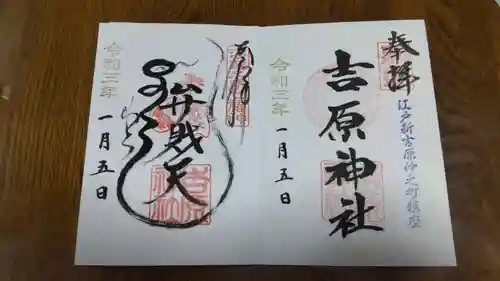 奉拝
江戸新吉原仲之町鎮座
吉原神社
令和三年
一月五日
弁財天
令和三年
一月五日